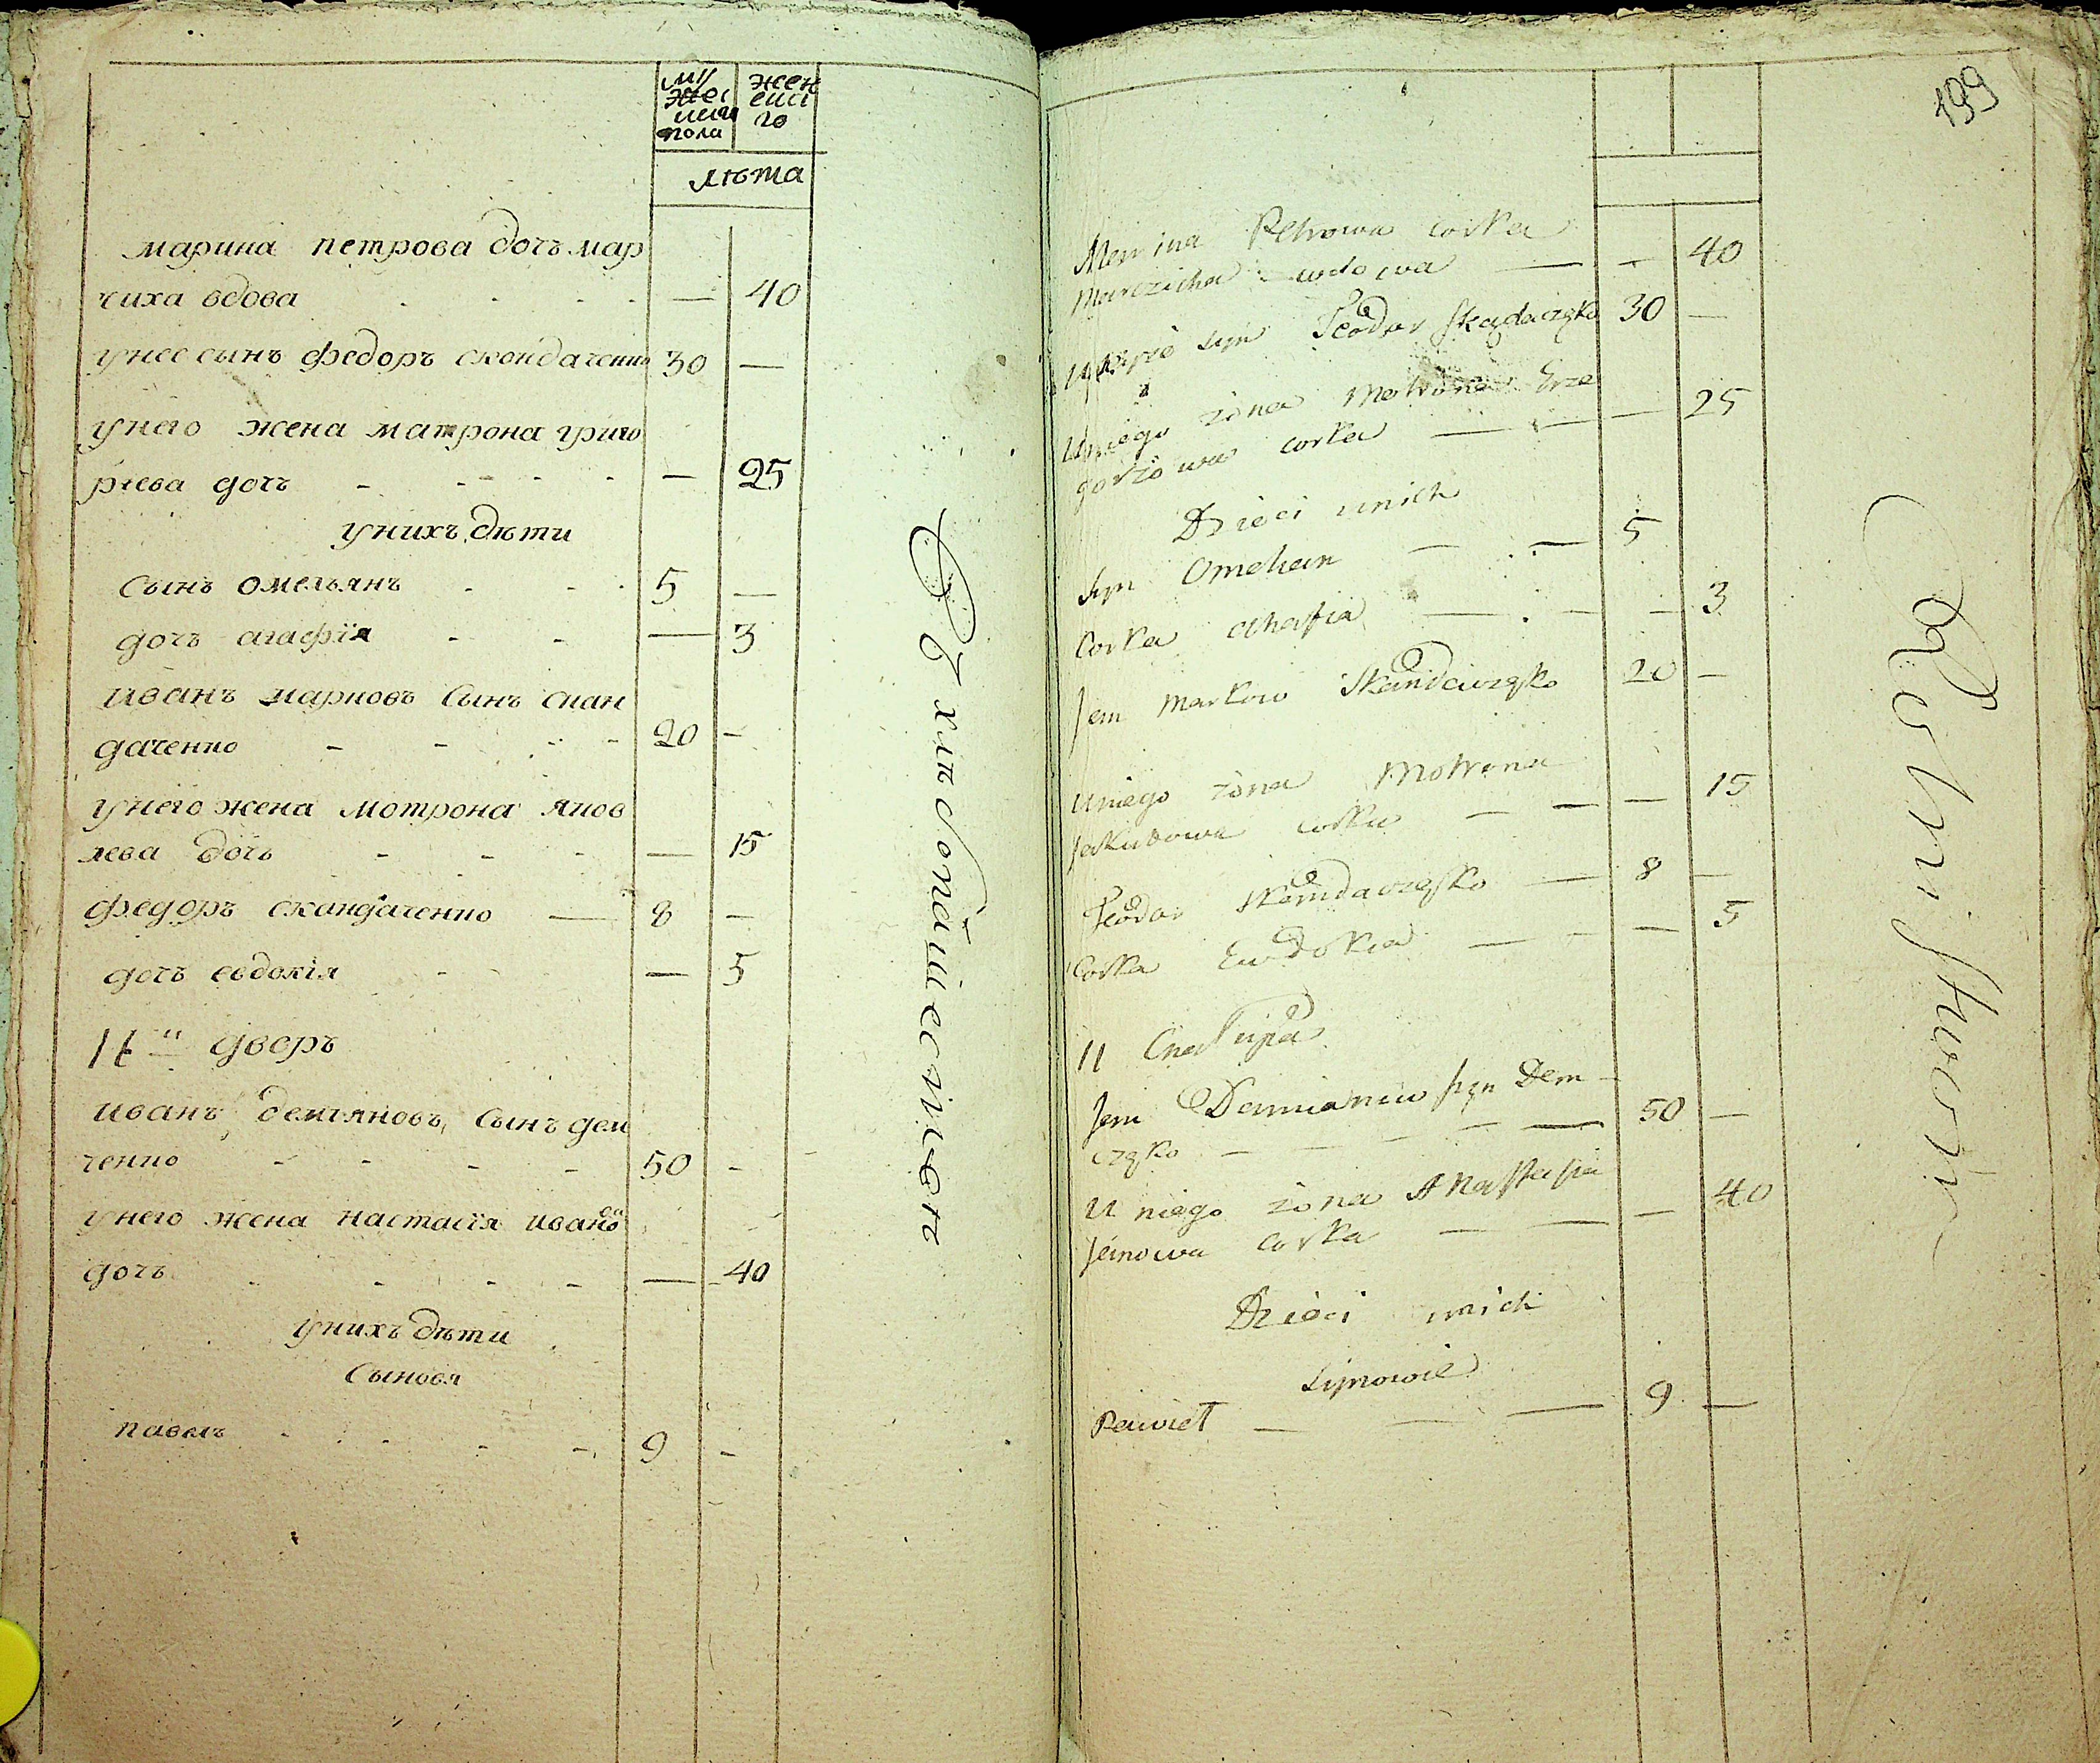 му
жес
каго
пола
жен
ска
го
лѣта
марина петрова дочъ мар
чиха вдова - - - — 40
унее сынъ федоръ скондаченко 30 —
унего жена матрона григо
рьева дочъ - - - - — 25
унихъ дѣти
сынъ омельянъ - - - 5 —
дочъ агафїя - - — 3
иванъ марковъ сынъ скан
даченко - - - - 20 -
унего жена мотрона яков
лева дочъ - - - — 15
федоръ скандаченко — 8 -
дочъ евдокїя - - — 5
11й дворъ
иванъ демьяновъ сынъ дем
ченко - - - - 50 -
унего жена настасїя иванова
дочъ - - - - — 40
унихъ дѣти
сыновя
павелъ - - - - 9 -
199
Maryna Petrowa corka
Marczicha wdowa — — 40
syn Teodor Skądaczęko 30 —
Uniego żona Motrona Grze
gorzowa corka — — — 25
Dzieci unich
syn Omelian — — 5
Corka Ahafia — — — 3
Jan Markow Skandaczęko 20 —
Uniego żona Motrona
Jakubowa corka — — — 15
Teodor Skandaczęsko — 8 —
Corka Eudokia — — — 5
11 Chałupa
Jan Damianow syn Dem
częko — — — — — 50 —
U niego żona Anastasia
Janowa corka — — — 40
Dzieci unich
synowie
Paweł — — — 9 —